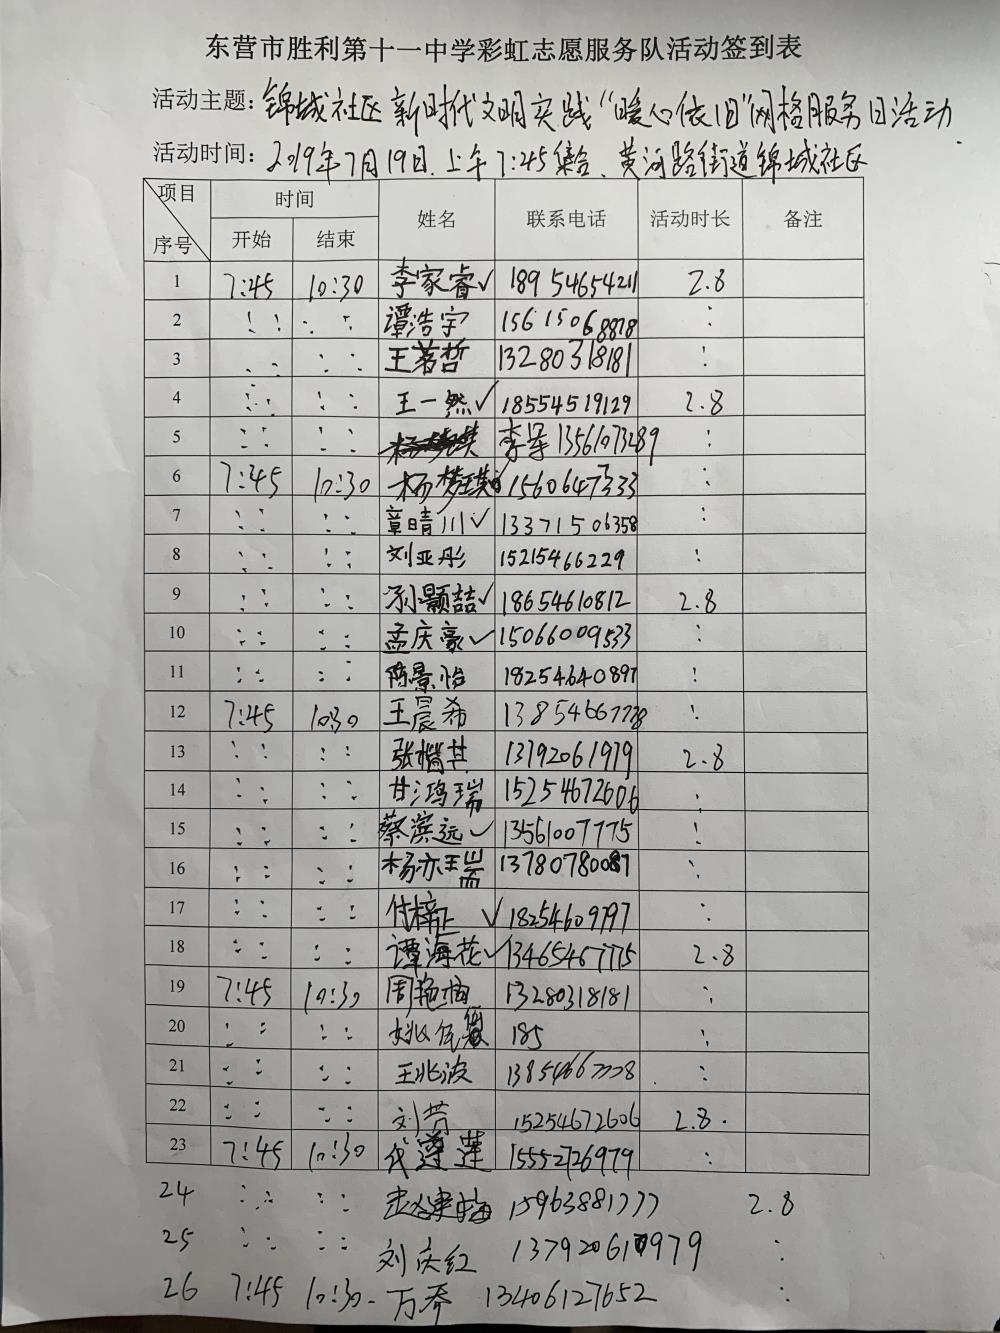 东营市胜利第十一中学彩虹志愿服务队活动签到表
活动主题：锦城社区新时代文明实践“暖心依旧”网格服务日活动
活动时间：2019年7月19日.上午7:45集合、黄河路街道锦城社区.
项目 时间 姓名 联系电话 活动时长 备注
序号 开始 结束
1 7:45 10:30 李家睿✓ 18954654211 2.8
2 : : : : 谭浩宇 15615068878 :
3 : : : : 王茗哲 13280318181 :
4 : : : : 王一然✓ 18554519129 2.8
5 : : : : 李军 13561073289 :
6 7:45 10:30 杨梦琪 15606467333 :
7 : : : : 章晴川✓ 13371506358 :
8 : : : : 刘亚彤 15215466229 :
9 : : : : 孙颢喆✓ 18654610812 2.8
10 : : : : 孟庆豪✓ 15066009533 :
11 : : : : 陈景怡 18254640897 :
12 7:45 10:30 王晨希 13854667778 :
13 : : : : 张楷其 13792061979 2.8
14 : : : : 甘鸿瑞 15254672606 :
15 : : : : 蔡滨远✓ 13561007775 :
16 : : : : 杨亦瑞 13780780087 :
17 : : : : 付梓 ✓ 18254609797 :
18 : : : : 谭海花✓ 13465467775 2.8
19 7:45 10:30 周艳梅 13280318181 :
20 : : : : 姚 185 :
21 : : : : 王兆波 13854667778 :
22 : : : : 刘芳 15254672606 2.8.
23 7:45 10:30 代莲莲 15552726979 :
24 : : : : 赵建梅 15963881777 2.8
25 : : : : 刘庆红 13792061979 :
26 7:45 10:30- 万乔 13406127652 :